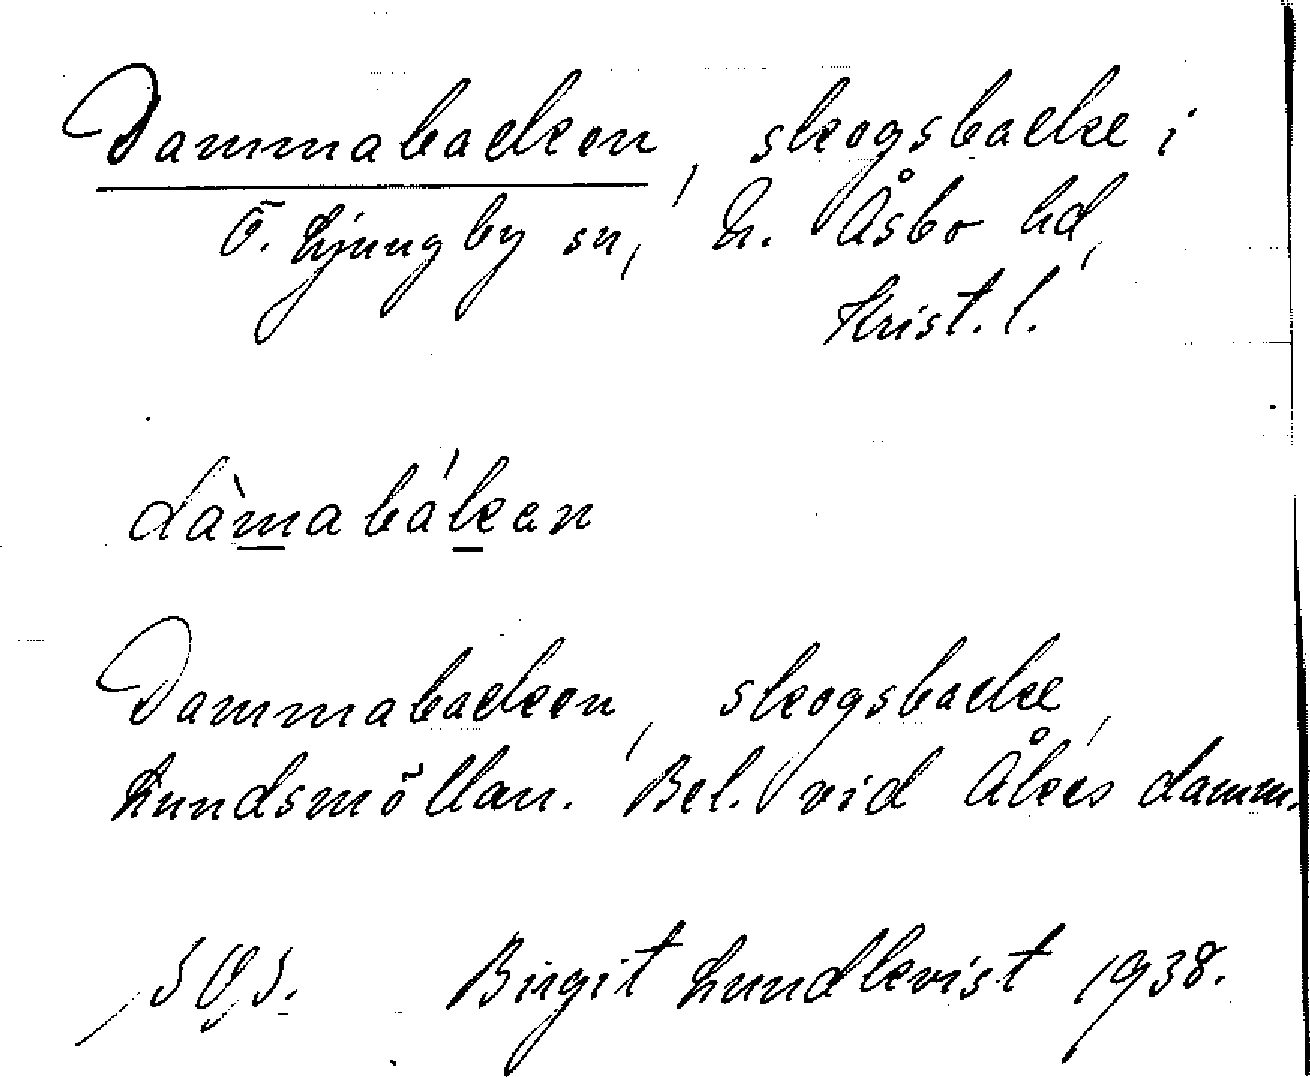 Dammabacken, skogsbacke i
Ö. Ljungby sn, N. Åsbo hd,
Krist. l.
dàmabáken
Dammabacken, skogsbacke,
Lundsmöllan. Bel. vid Åkes damm.
Birgit Lundkvist 1938.